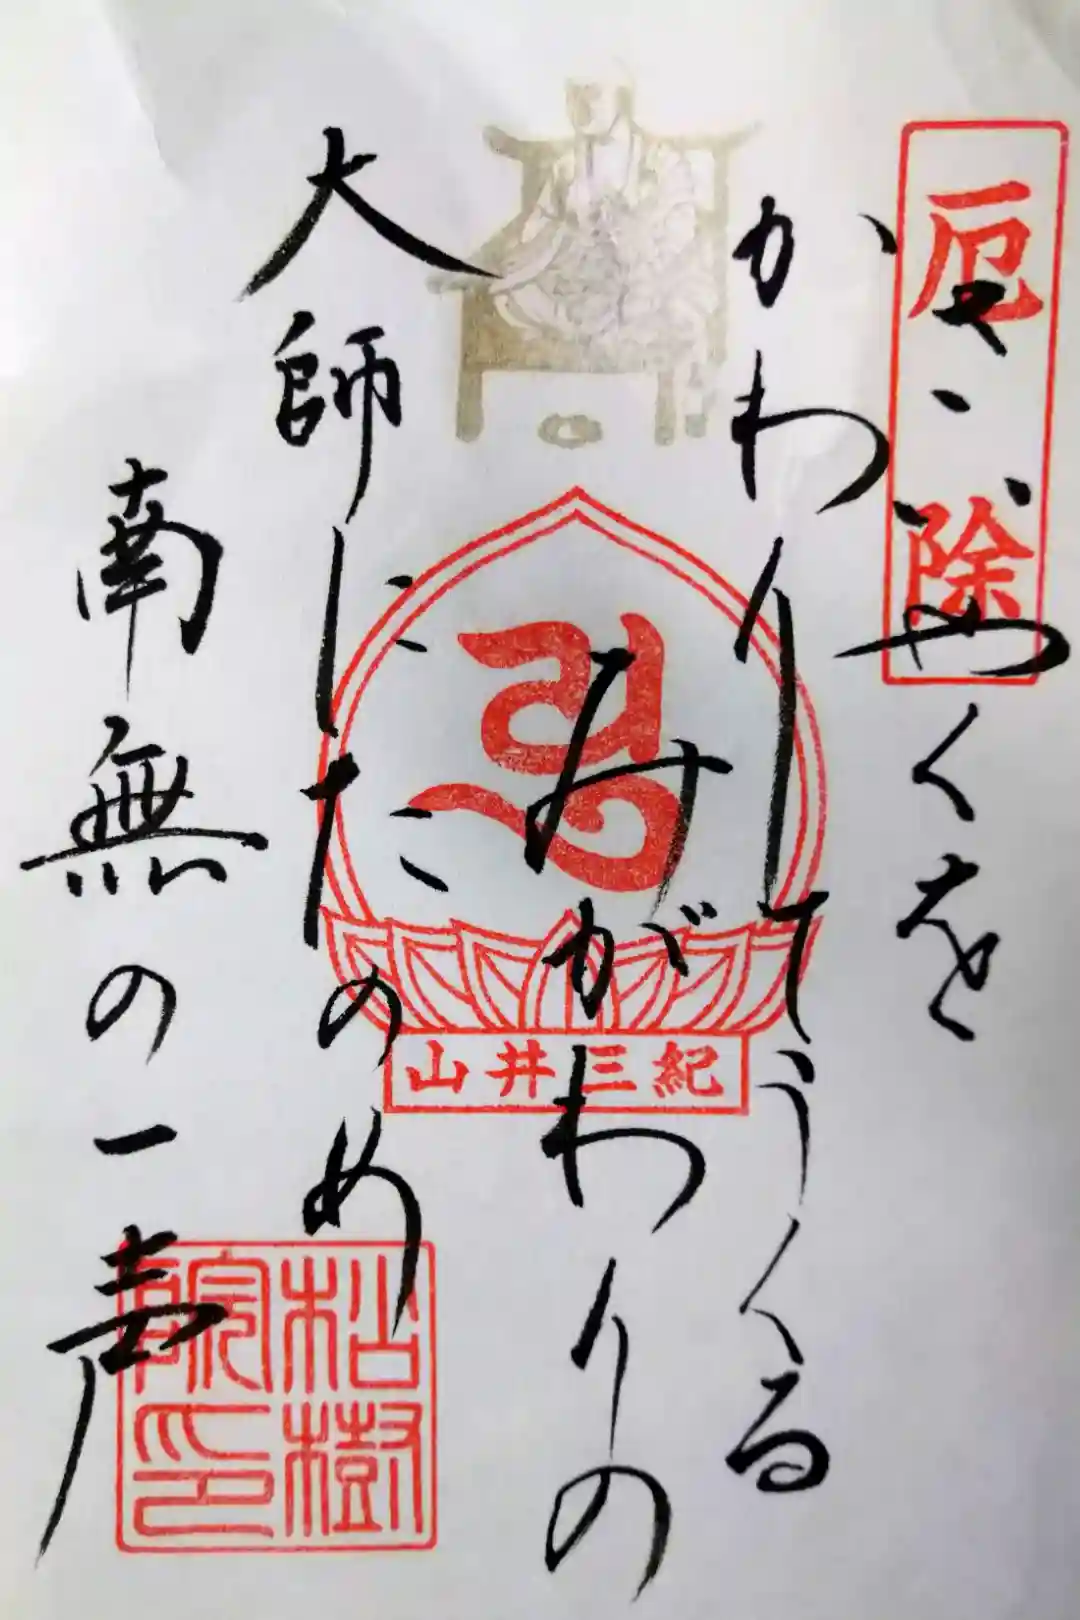 厄除
やくを
かわりてうくる
みがわりの
大師にたのめ
南無の一声
紀三井山
松樹院印